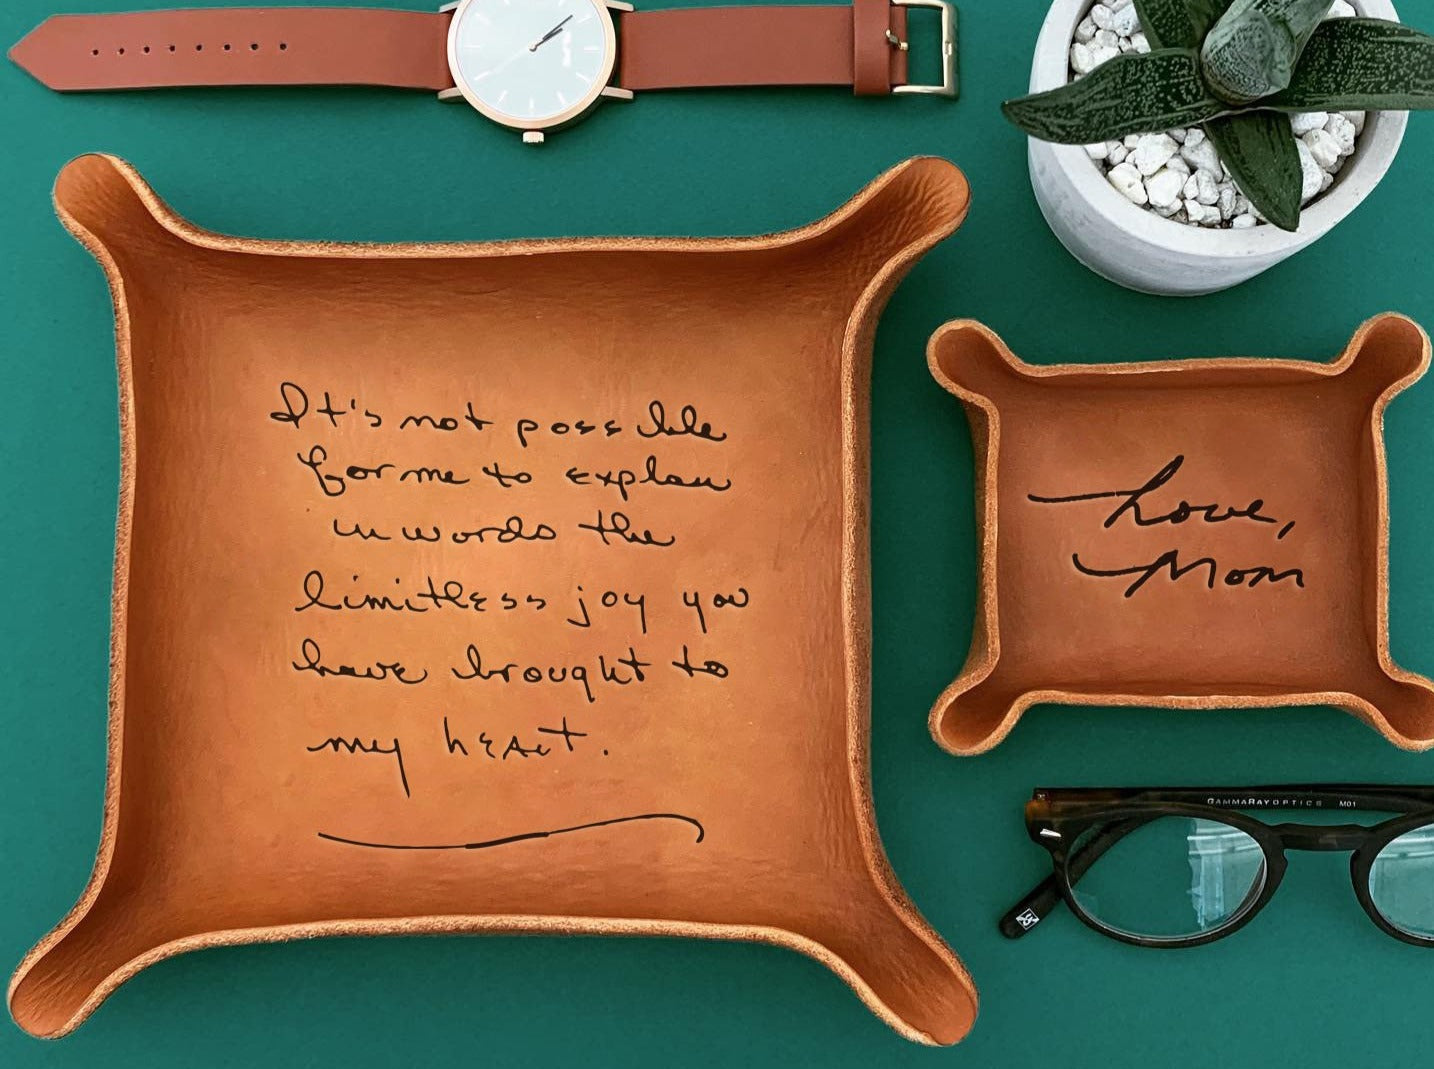 It's not possible
for me to explain
in words the
limitless joy you
have brought to
my heart.
Love,
Mom
GAMMARAY OPTICS M01